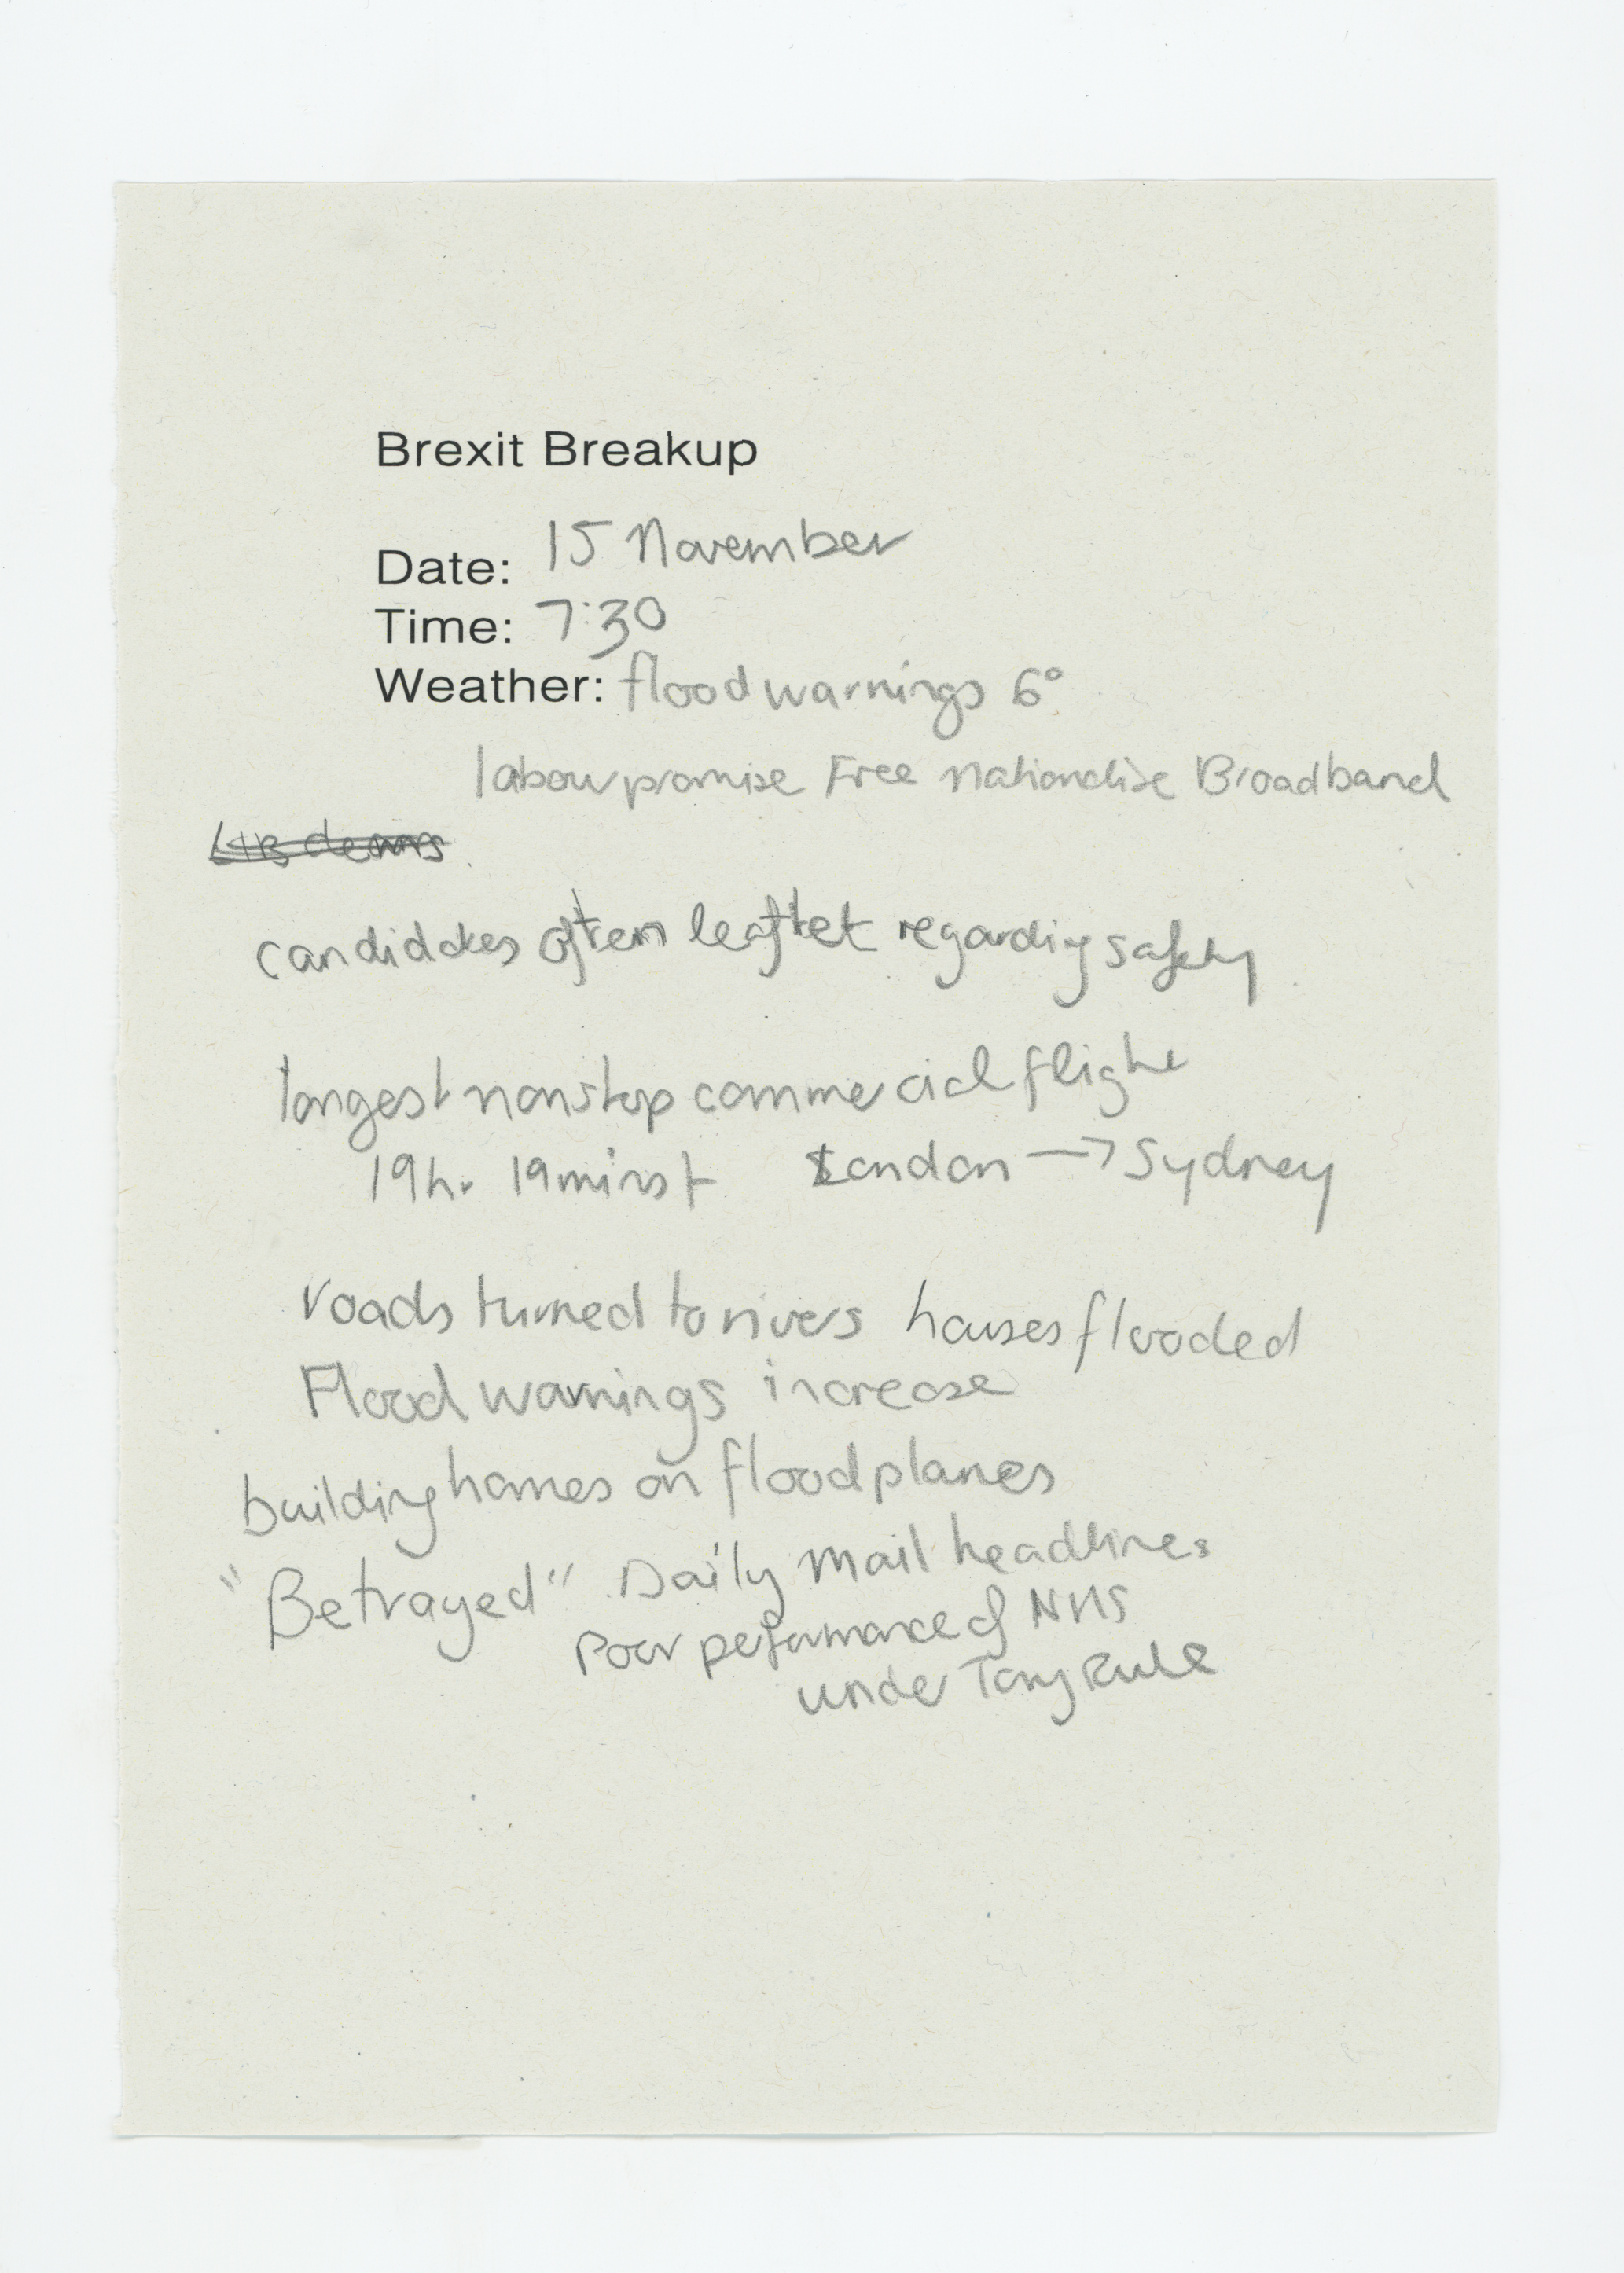 Brexit Breakup
Date: 15 November
Time: 7:30
Weather: flood warnings 6°
labour promise Free Nationalise Broadband
Lib dems
candidates often leaflet regarding safety
longest nonstop commercial flight
19hr 19mins London → Sydney
roads turned to rivers houses flooded
Flood warnings increase
building homes on floodplanes
"Betrayed" Daily Mail headlines
Poor peformance of NHS
under Tory Rule